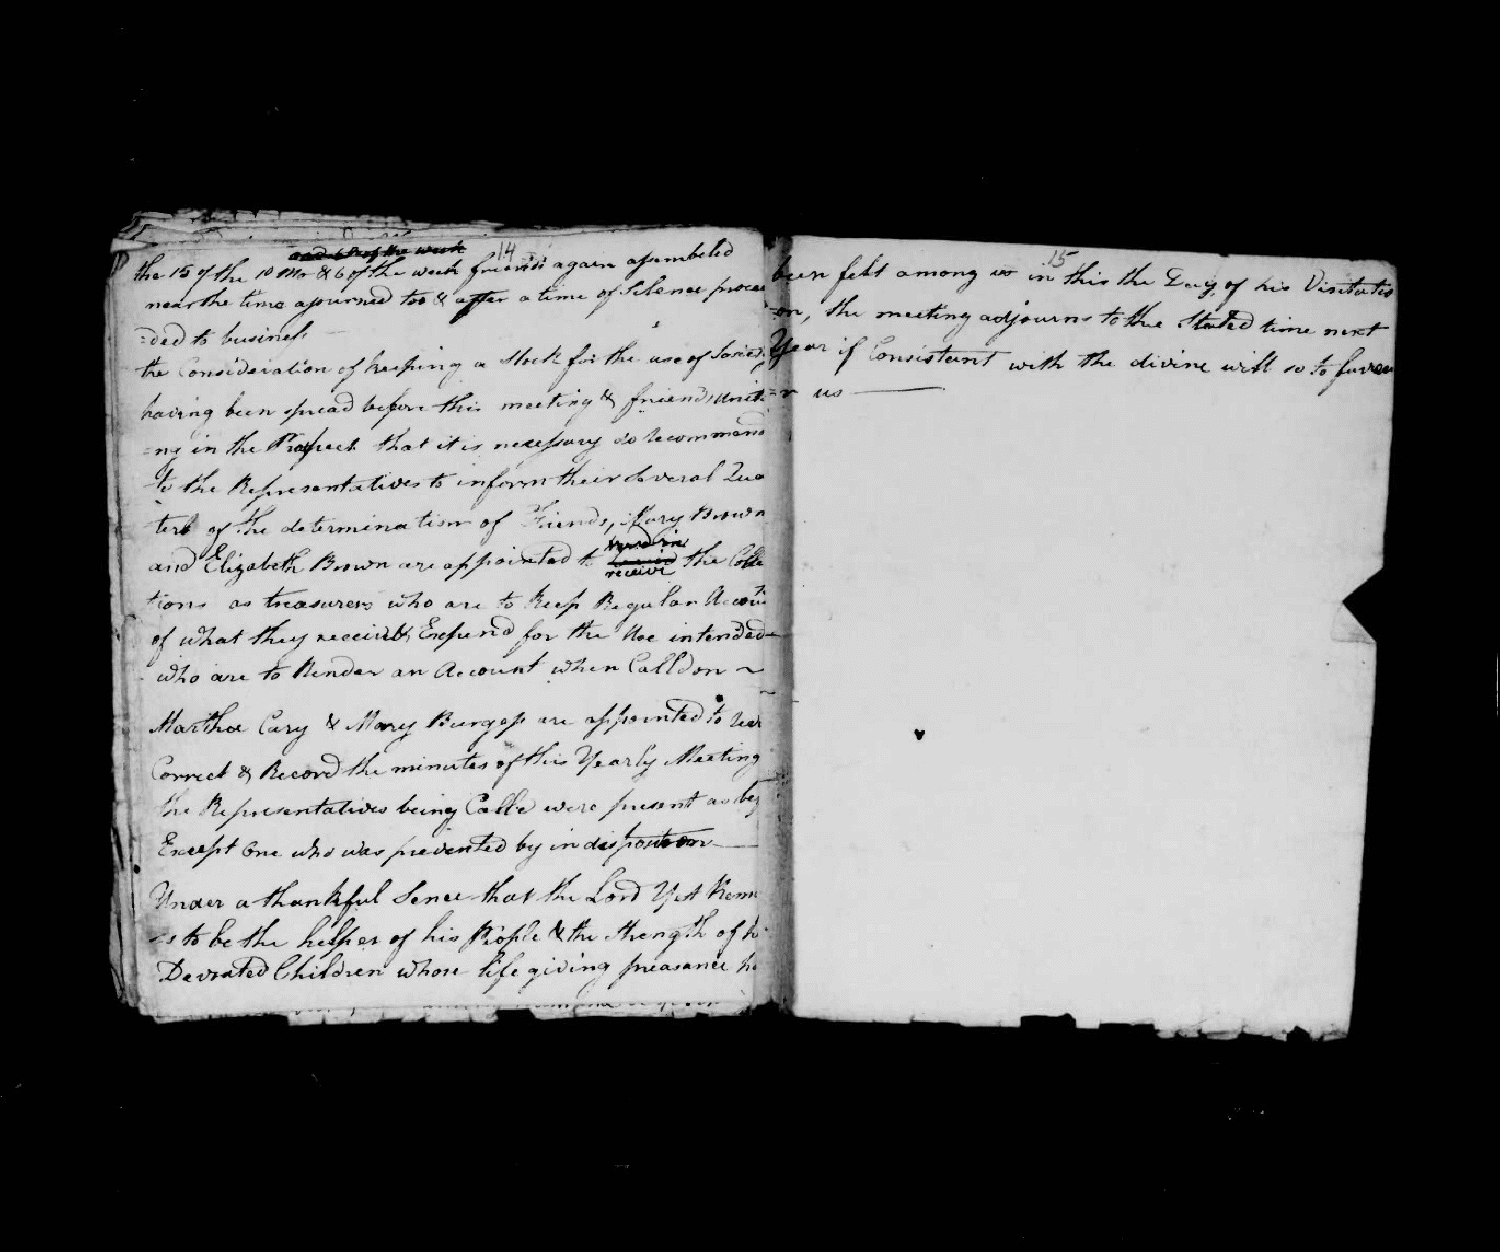 14
and 6 of the week
the 15 of the 10 Mo & 6 of the week friends again assembled
near the time ajourned too & after a time of Silence procee
=ded to business
the Consideration of keeping a stock for the use of Societ
having been spread before this meeting & friends unit=
=ng in the Prospect that it is necessary do recommand
to the Representatives to inform their several Qua
ters of the determination of Friends, Mary Brown
and Elizabeth Brown are appointed to
receive the Colle
tions as treasurers who are to keep Regular Accounts
of what they receive & Expend for the Use intended
who are to Render an Account when Calld on ~
Martha Cary & Mary Burgess are appointed to
Correct & Record the minutes of this Yearly Meeting
the Representatives being Calld were present
Except One who was prevented by indisposition
Under a thankful Sence that the Lord Yet Rem
=s to be the helper of his People & the strength of
Devoted Children whose life giving preasance
15
been felt among us in this the Day of his Visitatio
=on, the meeting adjourns to the Stated time next
Year if Consistant with the divine will so to favou
=r us